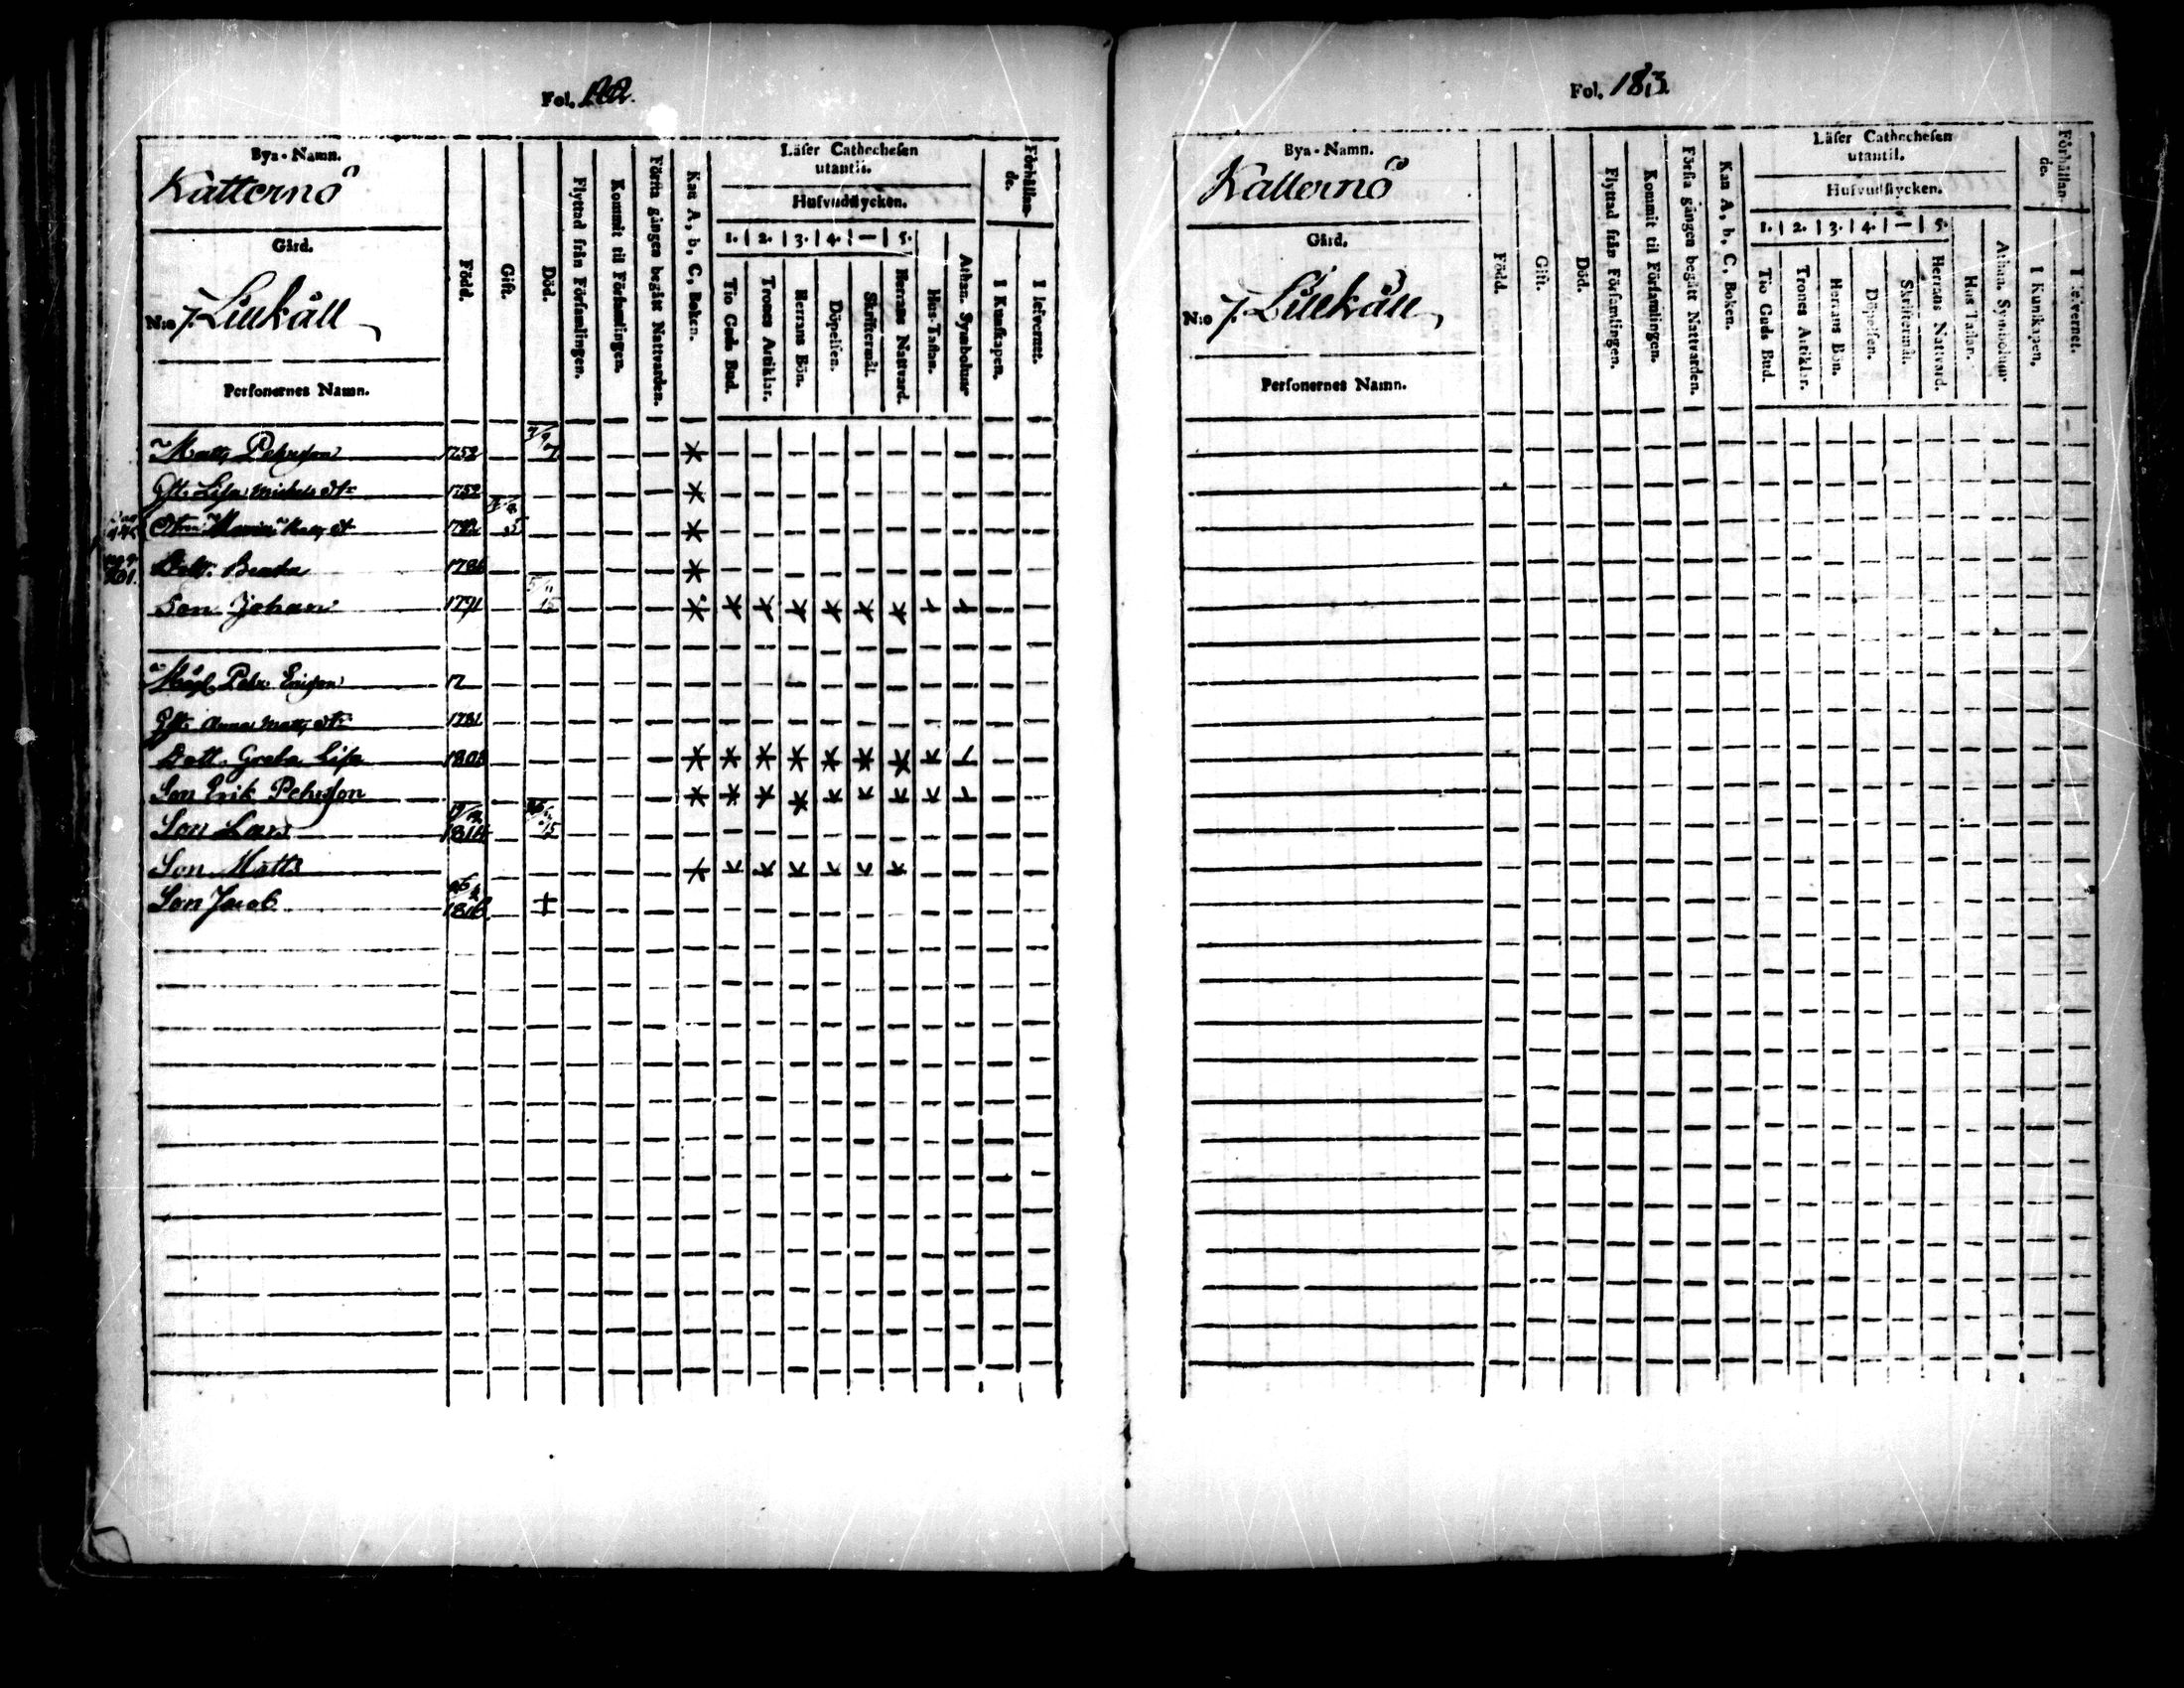 Fol. 182.
Bya-Namn.
Katternö
Gård.
N:o 7. Liukäll
Personernes Namn.
Född.
Gift.
Död.
Flyttad från Församlingen.
Kommit til Församlingen.
Första gången begått Nattvarden.
Kan A, b, C, Boken.
Läser Cathechesen
utantil.
Hufvudstycken.
1. 2. 3. 4. — 5.
Tio Guds Bud.
Trones Artiklar.
Herrans Bön.
Döpelsen.
Skriftermål.
Herrans Nattvard.
Hus-Taflan.
Athan. Symbolum
Förhållan-
de.
I Kunskapen.
I lefvernet.
Matts Pehrsson 1752
Lisa Michels dtr 1752
Maria Matts dr
Dott. Beata 1786
Son Johan 1791 15
Pehr Ericson 17
Anna Matts dtr 1781
Dott. Greta Lisa 1808
Son Erik Pehrsson
Son Lars 1814 15
Son Matts
Son Jacob 1816 +
Fol. 183.
Bya-Namn.
Katternö
Gård.
N:o 7. Liukäll
Personernes Namn.
Född.
Gift.
Död.
Flyttad från Församlingen.
Kommit til Församlingen.
Första gången begått Nattvarden.
Kan A, b, C, Boken.
Läser Cathechesen
utantil.
Hufvudstycken.
1. 2. 3. 4. — 5.
Tio Guds Bud.
Trones Artiklar.
Herrans Bön.
Döpelsen.
Skriftermål.
Herrans Nattvard.
Hus Taflan.
Athan. Symbolum
Förhållan-
de.
I Kunskapen.
I lefvernet.